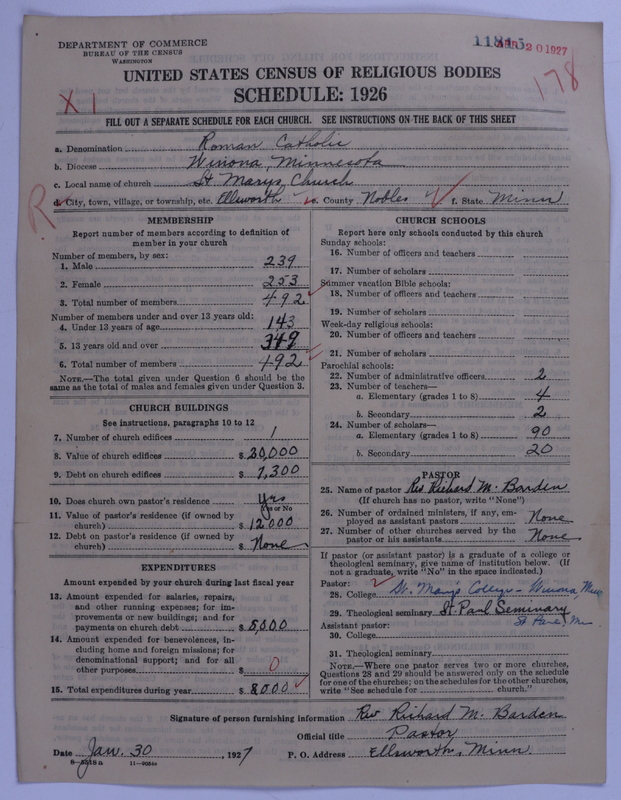 DEPARTMENT OF COMMERCE
BUREAU OF THE CENSUS
WASHINGTON
APR 20 1927
178
UNITED STATES CENSUS OF RELIGIOUS BODIES
SCHEDULE: 1926
X 1
FILL OUT A SEPARATE SCHEDULE FOR EACH CHURCH. SEE INSTRUCTIONS ON THE BACK OF THIS SHEET
a. Denomination Roman Catholic
b. Diocese Winona, Minnesota
c. Local name of church St Marys Church
d. City, town, village, or township, etc. Ellsworth e. County Nobles f. State Minn
R
MEMBERSHIP
Report number of members according to definition of
member in your church
Number of members, by sex:
1. Male 239
2. Female 253
3. Total number of members 492
Number of members under and over 13 years old:
4. Under 13 years of age 143
5. 13 years old and over 349
6. Total number of members 492
NOTE.—The total given under Question 6 should be the
same as the total of males and females given under Question 3.
CHURCH BUILDINGS
See instructions, paragraphs 10 to 12
7. Number of church edifices 1
8. Value of church edifices $ 20,000
9. Debt on church edifices $ 7,300
10. Does church own pastor's residence Yes
Yes or No
11. Value of pastor's residence (if owned by
church) $ 12000
12. Debt on pastor's residence (if owned by
church) $ None
EXPENDITURES
Amount expended by your church during last fiscal year
13. Amount expended for salaries, repairs,
and other running expenses; for im-
provements or new buildings; and for
payments on church debt $ 8,000
14. Amount expended for benevolences, in-
cluding home and foreign missions; for
denominational support; and for all
other purposes $ 0
15. Total expenditures during year $ 8000
CHURCH SCHOOLS
Report here only schools conducted by this church
Sunday schools:
16. Number of officers and teachers
17. Number of scholars
Summer vacation Bible schools:
18. Number of officers and teachers
19. Number of scholars
Week-day religious schools:
20. Number of officers and teachers
21. Number of scholars
Parochial schools:
22. Number of administrative officers 2
23. Number of teachers—
a. Elementary (grades 1 to 8) 4
b. Secondary 2
24. Number of scholars—
a. Elementary (grades 1 to 8) 90
b. Secondary 20
PASTOR
25. Name of pastor Rev. Richard M. Barden
(If church has no pastor, write "None")
26. Number of ordained ministers, if any, em-
ployed as assistant pastors None
27. Number of other churches served by the
pastor or his assistants None
If pastor (or assistant pastor) is a graduate of a college or
theological seminary, give name of institution below. (If
not a graduate, write "No" in the space indicated.)
Pastor:
28. College St. Mary's College - Winona, Minn
29. Theological seminary St Paul Seminary
Assistant pastor: St Paul, Mn
30. College
31. Theological seminary
NOTE.—Where one pastor serves two or more churches,
Questions 28 and 29 should be answered only on the schedule
for one of the churches; on the schedules for the other churches,
write "See schedule for church."
Signature of person furnishing information Rev Richard M. Barden
Official title Pastor
Date Jan. 30, 1927 P. O. Address Ellsworth, Minn.